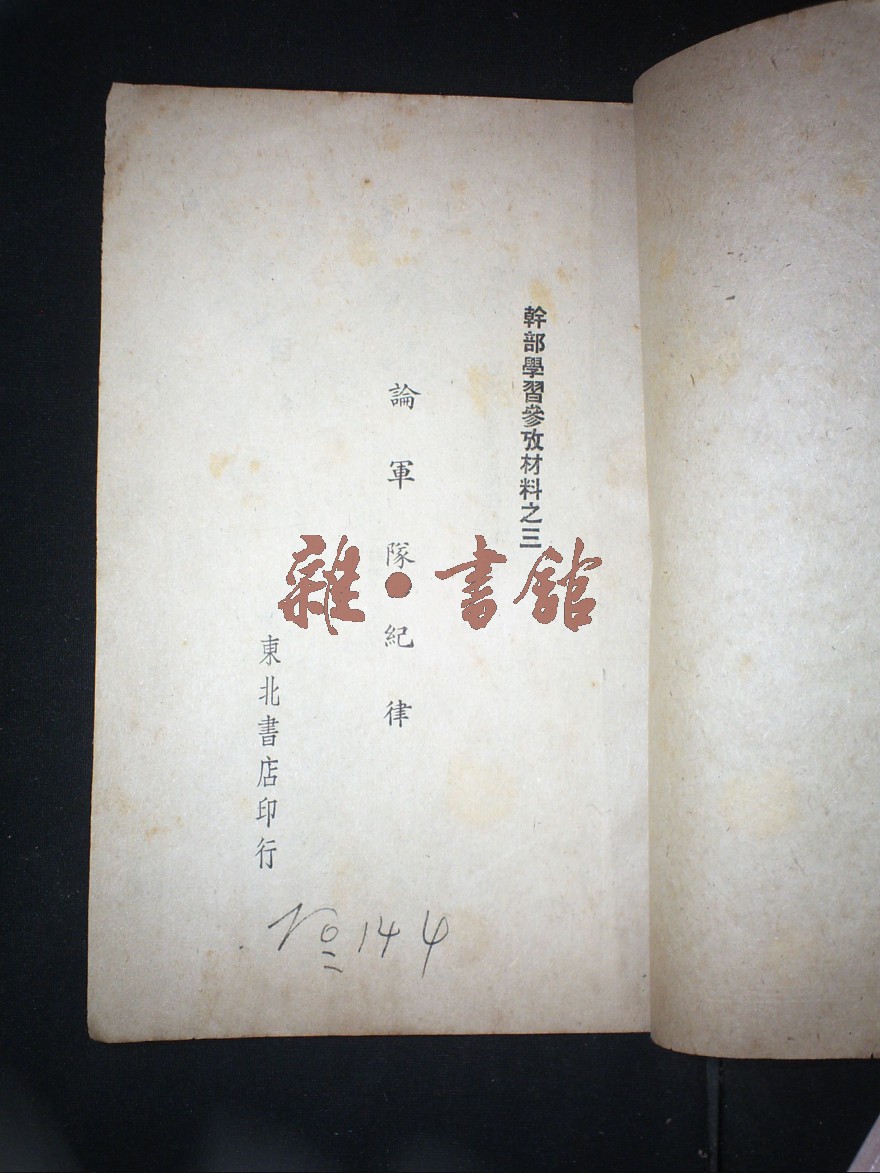 幹部學習參攷材料之三
論軍隊紀律
東北書店印行
№144
雜·書館